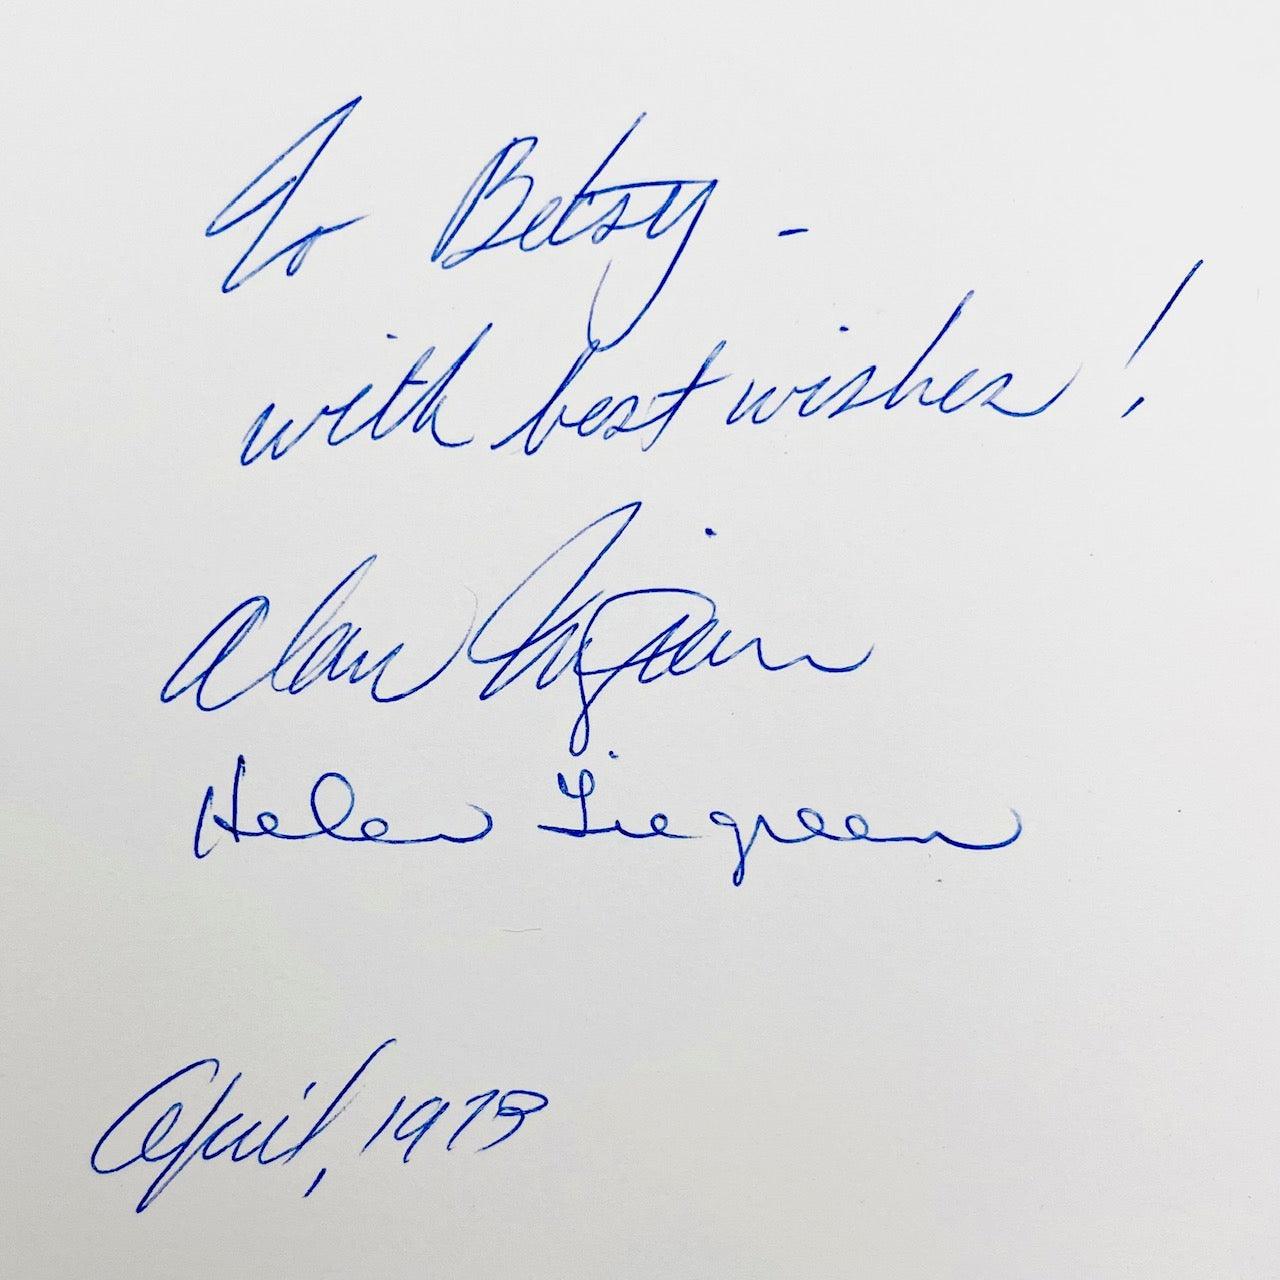 To Betsy -
with best wishes!
Alan Tiegreen
Helen Tiegreen
April, 1973